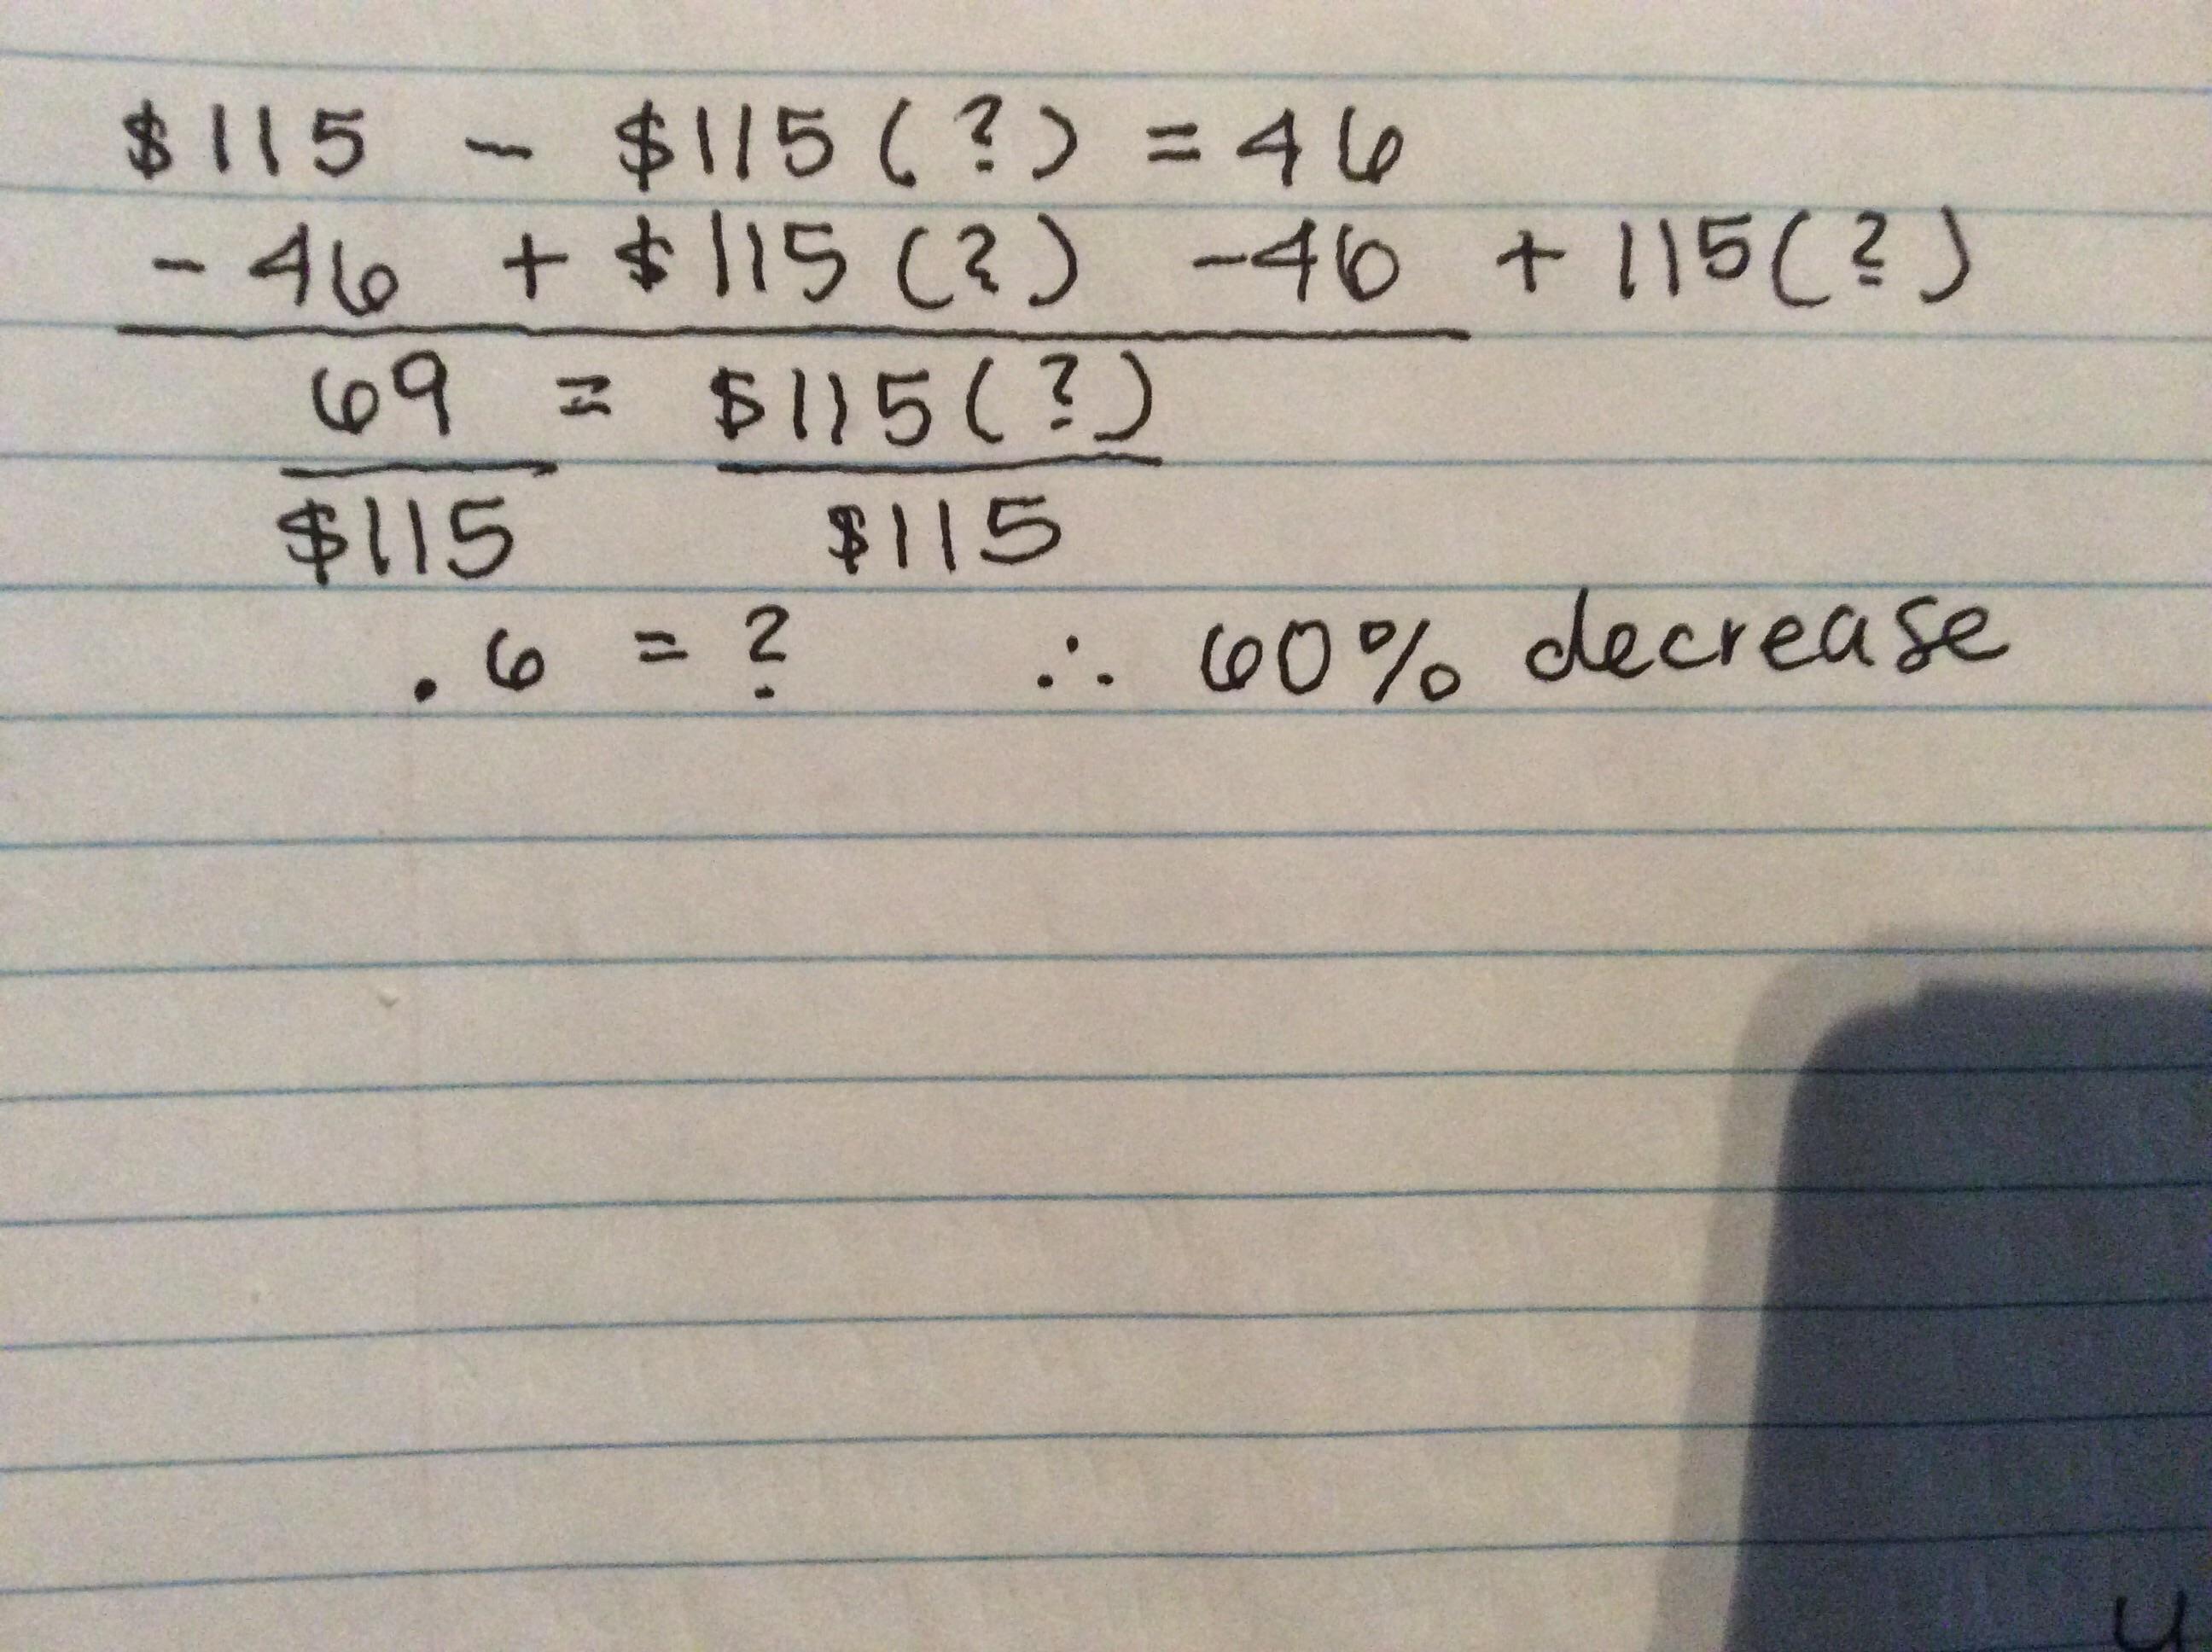 $115 - $115 (?) = 46
- 46 + $115 (?) -46 + 115 (?)
69 = $115 (?)
$115 $115
.6 = ? ∴ 60% decrease